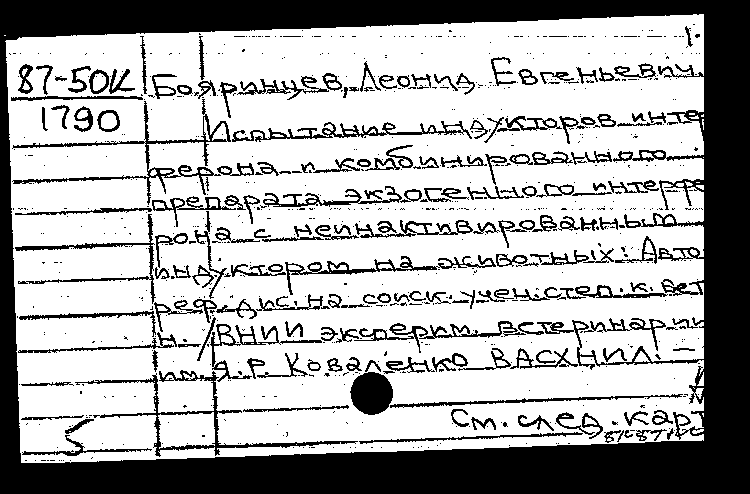 1.
87-50К Бояринцев, Леонид Евгеньевич.
1790 Испытание индукторов инте
ферона и комбинированного
препарата экзогенного интерфе
рона с неинактивированным
индуктором на животных: Авто
реф. дис. на соиск. учен. степ. к. вет
н. /ВНИИ эксперим. ветеринарии
им. Я. Р. Коваленко ВАСХНИЛ. —
См. след. карт
5